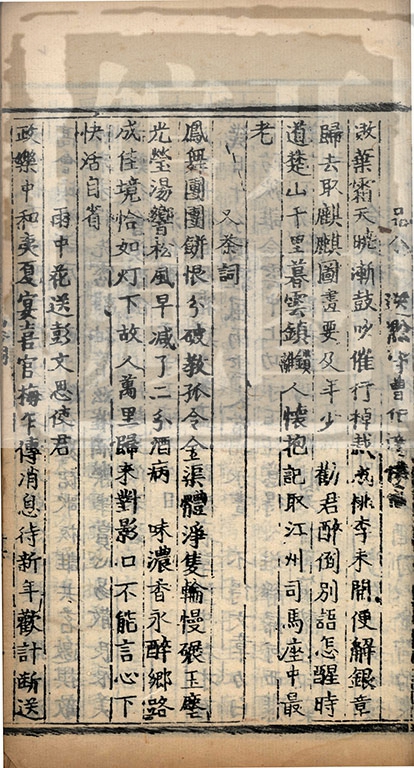 品令 送黔守曹伯達供備
敗葉霜天曉漸鼓吹催行棹栽成桃李未開便解銀章
歸去取麒麟圖畫要及年少 勸君醉倒別語怎醒時
道楚山千里暮雲鎮鎖離人懷抱記取江州司馬座中最
老
又茶詞
鳳舞團團餅恨分破教孤令金渠體淨隻輪慢碾玉塵
光瑩湯響松風早减了二分酒病 味濃香永醉鄉路
成佳境恰如灯下故人萬里歸來對影口不能言心下
快活自省
雨中花送彭文思使君
政樂中和夷夏宴喜官梅乍傳消息待新年歡計断送